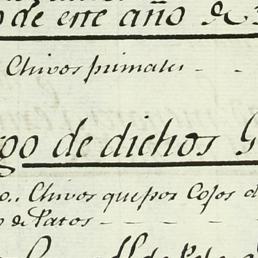 de este año de
Chivos primales
go de dichos G
o.. Chivos que por Cojos d
o de Patos